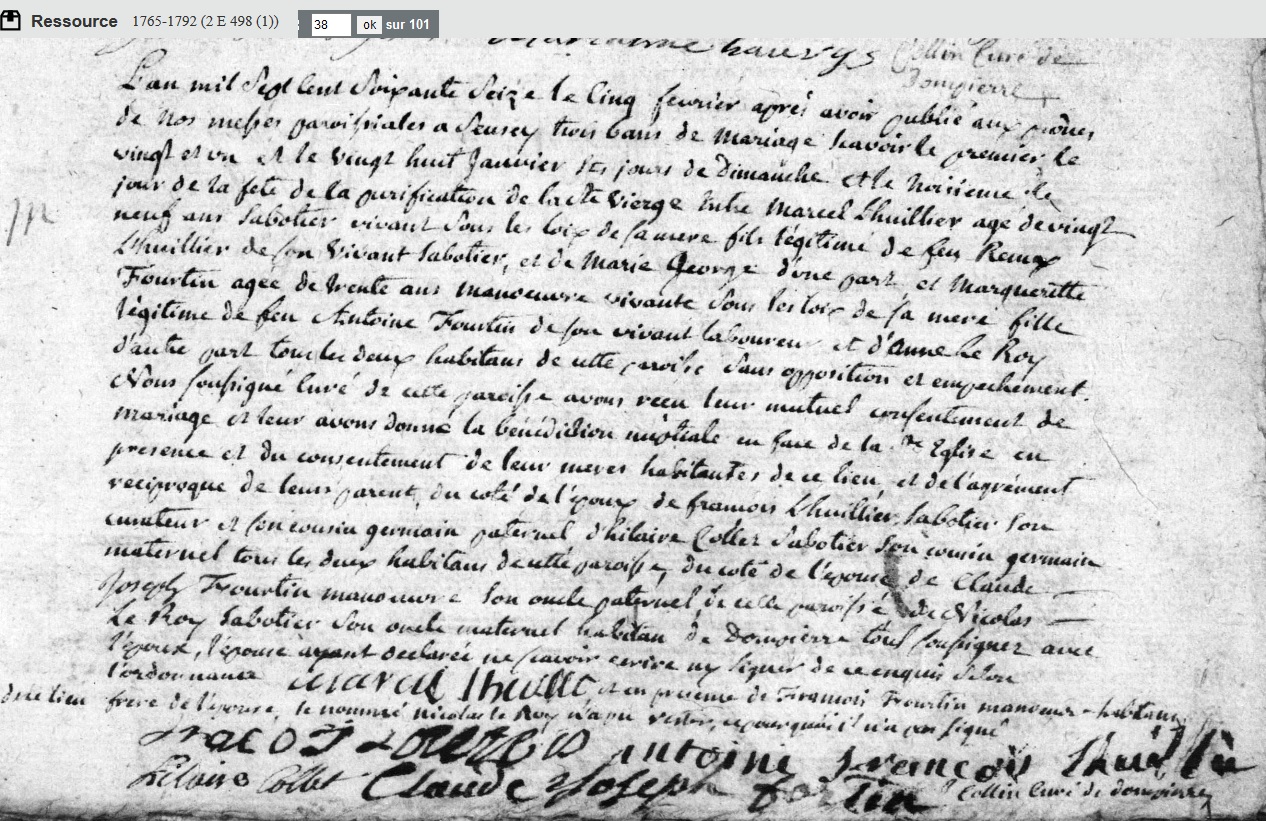 Ressource 1765-1792 (2 E 498 (1)) 38 ok sur 101
Marianne hauvys Collin Curé de
Dompierre
L'an mil Sept Cent Soixante Seize le Cinq fevrier aprés avoir publié aux prônes
de Nos messes paroissiales a Seusey trois bans de Mariage Scavoir le premier le
vingt et un et le vingt huit Janvier jours de Dimanche et le troisieme le
jour de la fete de la purification de la Ste Vierge Entre Marcel Lhuillier age de vingt
neuf ans Sabotier vivant Sous les loix de sa mere fils légitime de feu Remy
Lhuillier de son Vivant Sabotier, et de Marie George d'une part et Margueritte
Fourtin agée de trente ans manoeuvre vivante Sous les loix de sa mere fille
légitime de feu Antoine Fourtin de son vivant laboureur et d'Anne le Roy
d'autre part tous les deux habitans de cette paroisse Sans opposition et empechement.
Nous soussigné Curé de cette paroisse avons recu leur mutuel consentement de
mariage et leur avons donné la bénédiction nuptiale en face de la Ste Eglise en
presence et du consentement de leur meres habitantes de ce lieu et de l'agrément
reciproque de leurs parent, du coté de l'époux de francois Lhuillier Sabotier Son
curateur et son cousin germain paternel d'hilaire Collet Sabotier Son cousin germain
maternel tous les deux habitans de cette paroisse, du coté de l'epouse de Claude
Joseph Fourtin manoeuvre Son oncle paternel de cette paroisse de Nicolas
Le Roy Sabotier Son oncle maternel habitan de Dompierre tous soussignez avec
l'époux, l'épouse ayant declarée ne scavoir ecrire ny signer de ce enquis Selon
l'ordonnance marcel lhuillie et en presence de Francois Fourtin manoeuvre habitant
de ce lieu frere de l'épouse, le nommé nicolas le Roy n'a pu rester, cepourquoi il n'a pas signé
antoine francois lhuillie
hilaire Collet Claude Joseph fortin Collin Curé de dompierre